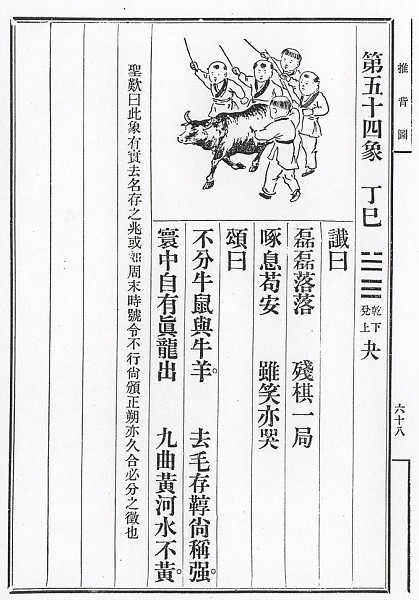 推背圖
六十八
第五十四象 丁巳 乾下 兌上 夬
讖曰
磊磊落落 殘棋一局
啄息苟安 雖笑亦哭
頌曰
不分牛鼠與牛羊。 去毛存鞟尚稱强。
寰中自有眞龍出 九曲黃河水不黃。
聖歎曰此象有實去名存之兆或周末時號令不行尙頒正朔亦久合必分之徵也